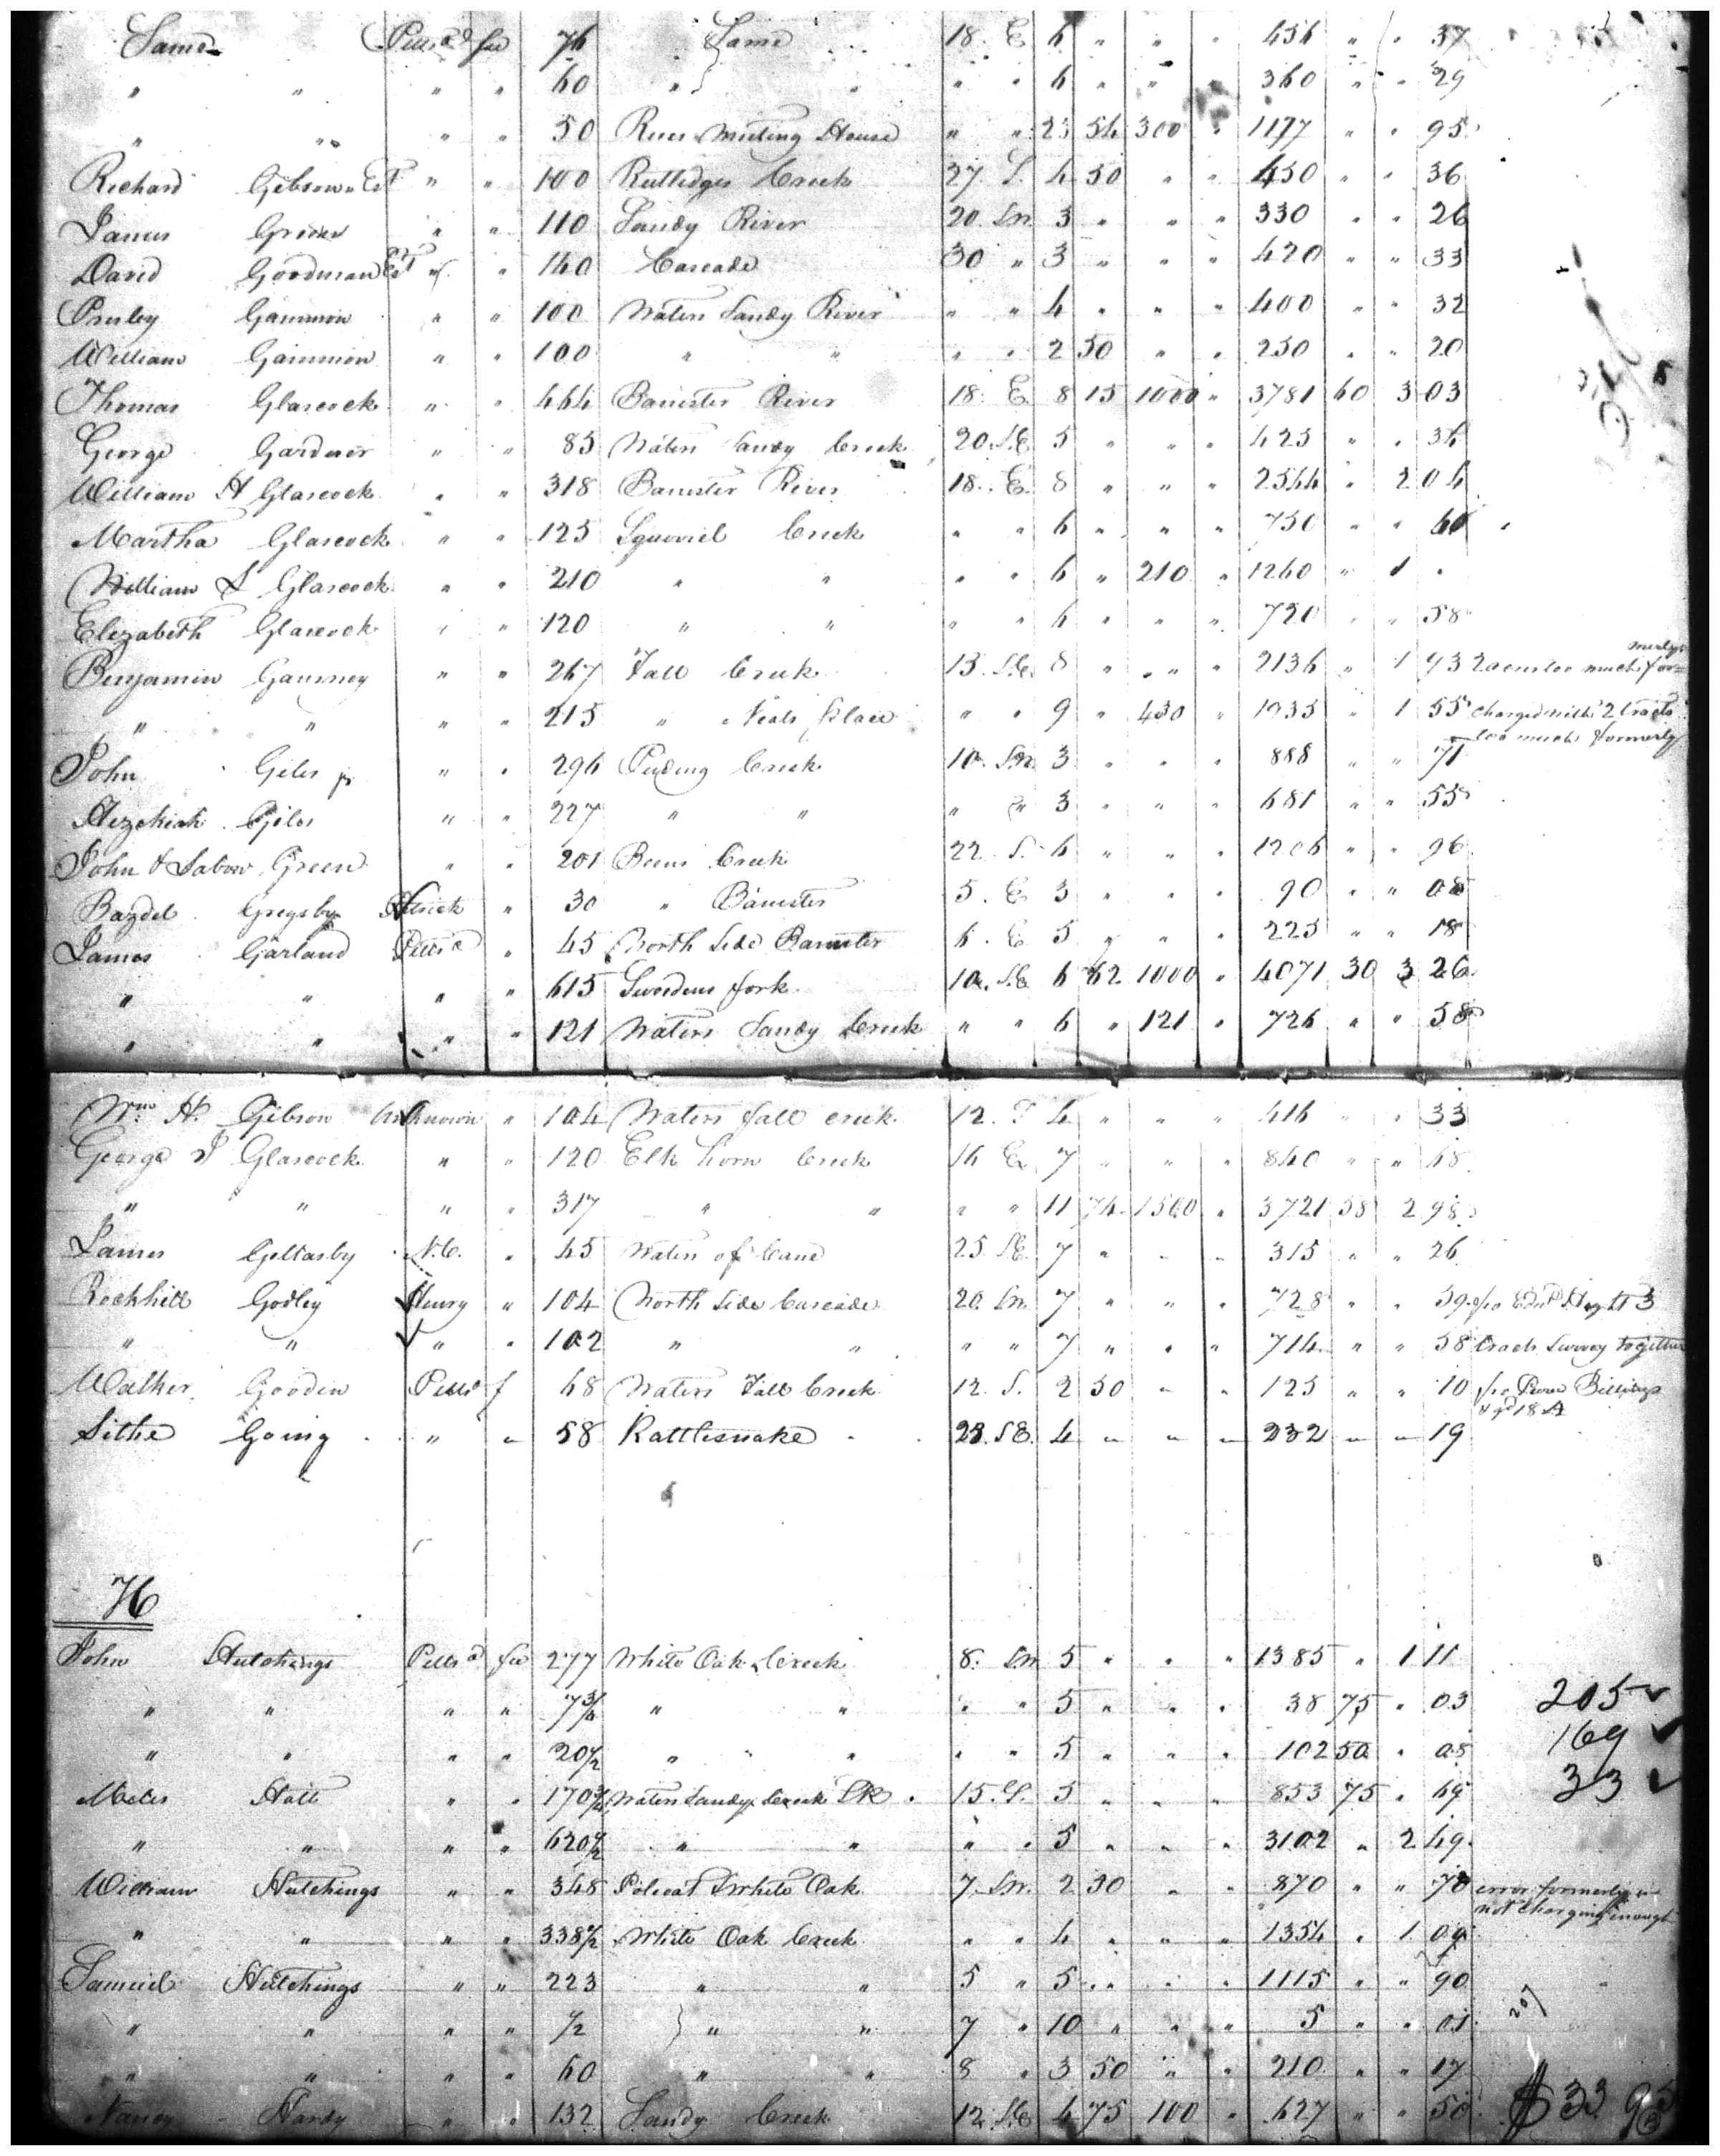 Same Pitts^a fee 76 Same 18. E 6 " " " 456 " " 37
" " " " 60 " " " " 6 " " " 360 " " 29
" " " " 50 Meeting House " " 23 54 300 " 1177 " " 95
Richard Gibson Est " " 100 Rutledges Creek 27 S. 4 50 " " 450 " " 36
James " " 110 Sandy River 20. SW 3 " " " 330 " " 26
David Goodman Est " " 140 Cascade 30 " 3 " " " 420 " " 33
Presley Gammon " " 100 Waters Sandy River " " 4 " " " 400 " " 32
William Gammon " " 100 " " " " 2 50 " " 250 " " 20
Thomas Glascock " " 464 Banister River 18. E 8 15 1000 " 3781 60 3 03
George Gardner " " 85 Waters Sandy Creek 20. SE 5 " " " 425 " " 34
William H Glascock " " 318 Banister River 18. E. 8 " " " 2544 " 2 04
Martha Glascock " " 125 Squirrel Creek " " 6 " " " 750 " " 60
William S Glascock " " 210 " " " " 6 " 210 " 1260 " 1 "
Elizabeth Glascock " " 120 " " " " 6 " " " 720 " " 58
Benjamin Gaurney " " 267 Fall Creek 13. SE 8 " " " 2136 " 1 93 2 acres too much for=
merly
" " " " 215 " Neals place " " 9 " 430 " 1935 " 1 55 charged with 2 tracts
too much formerly
John Giles jr " " 296 Puding Creek 10. SW 3 " " " 888 " " 71
Hezekiah Giles " " 227 " " " " 3 " " " 681 " " 55
John & Green " " 201 Beens Creek 22 S. 6 " " " 1206 " " 96
Bazdel Gregsby " 30 " Banister 5. E 3 " " " 90 " " 08
James Garland Pitts^a " 45 North Side Banister 6. E 5 " " " 225 " " 18
" " " " 615 fork 10. SE 6 62 1000 " 4071 30 3 26
" " " " 121 Waters Sandy Creek " " 6 " 121 " 726 " " 58
Wm H. Gibson Unknown " 104 Waters fall creek 12. 4 " " " 416 " " 33
George J Glascock " " 120 Elk horn Creek 16 E 7 " " " 840 " " 68
" " " " 317 " " " " 11 74 1500 " 3721 58 2 98
James N.C. " 45 Waters of Cane 25 SE 7 " " " 315 " " 26
Rockhill Godley Henry " 104 North Side Cascade 20. SW 7 " " " 728 " " 59 3
" " " " 102 " " " " 7 " " " 714 " " 58 tracts Survey together
Walker Gooden Pitts^a f 68 Waters Fall Creek 12. S. 2 50 " " 125 " " 10 Billings
18 A
Sithe Going " " 58 Rattlesnake 23. SE. 4 " " " 232 " " 19
76
John Hutchings Pitts^a fee 277 White Oak Creek 8. SW 5 " " " 1385 " 1 11
" " " " 7 3/4 " " " " 5 " " " 38 75 " 03 205 ✓
" " " " 20 1/2 " " " " 5 " " " 102 50 " 05 169 ✓
Hall " " 170 3/4 Waters Sandy Creek 15. S. 5 " " " 853 75 " 69 33 ✓
" " " " 620 1/2 " " " " 5 " " " 3102 " 2 49
William Hutchings " " 348 Polecat & White Oak 7. SW. 2 50 " " 870 " " 70 error formerly in
not charging enough
" " " " 338 1/2 White Oak Creek " " 4 " " " 1354 " 1 09
Samuel Hutchings " " 223 " " 5 " 5 " " " 1115 " " 90
" " " " 1/2 } " " 7 " 10 " " " 5 " " 01 207
" " " " 60 " " 8 " 3 50 " " 210 " " 17
Nancy Hardy " " 132 Sandy Creek 12. SE 4 75 100 " 627 " " 50 $33 95